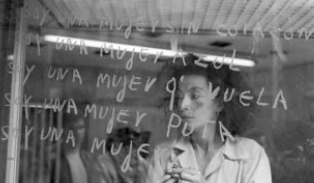 SOY UNA MUJER SIN CORAZON
Y UNA MUJER AZUL
SOY UNA MUJER QUE VUELA
SOY UNA MUJER PUTA
SOY UNA MUJE